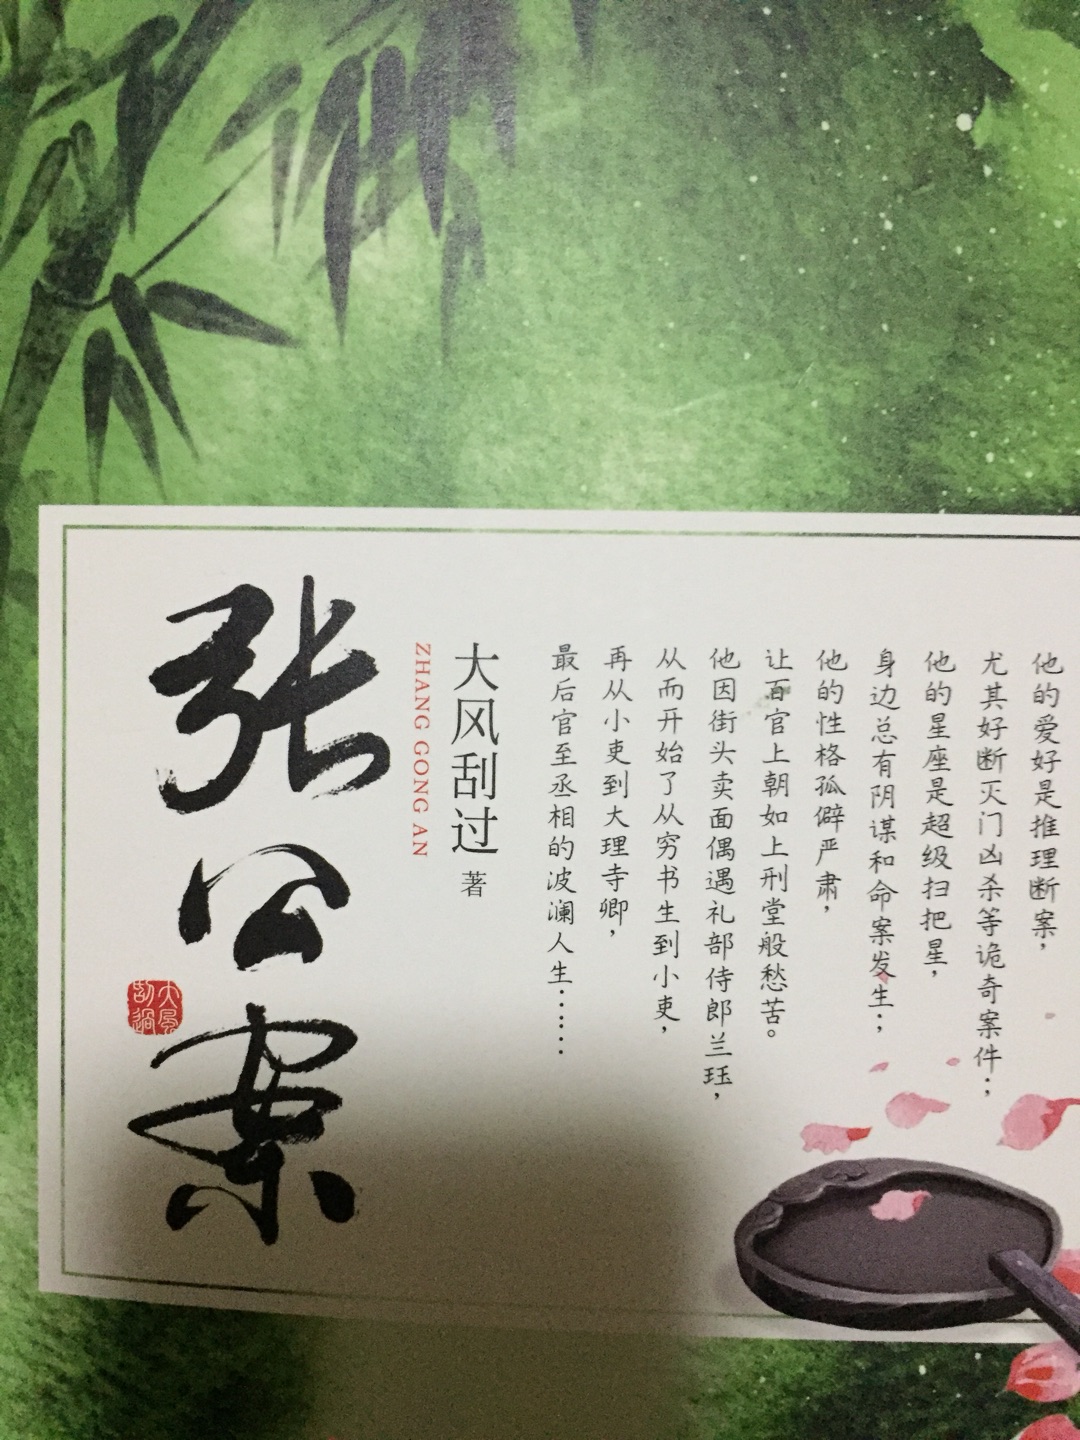 他的爱好是推理断案，
尤其好断灭门凶杀等诡奇案件；
他的星座是超级扫把星，
身边总有阴谋和命案发生；
他的性格孤僻严肃，
让百官上朝如上刑堂般愁苦。
他因街头卖面偶遇礼部侍郎兰珏，
从而开始了从穷书生到小吏，
再从小吏到大理寺卿，
最后官至丞相的波澜人生……
大风刮过 著
ZHANG GONG AN
张公案
大風
刮過